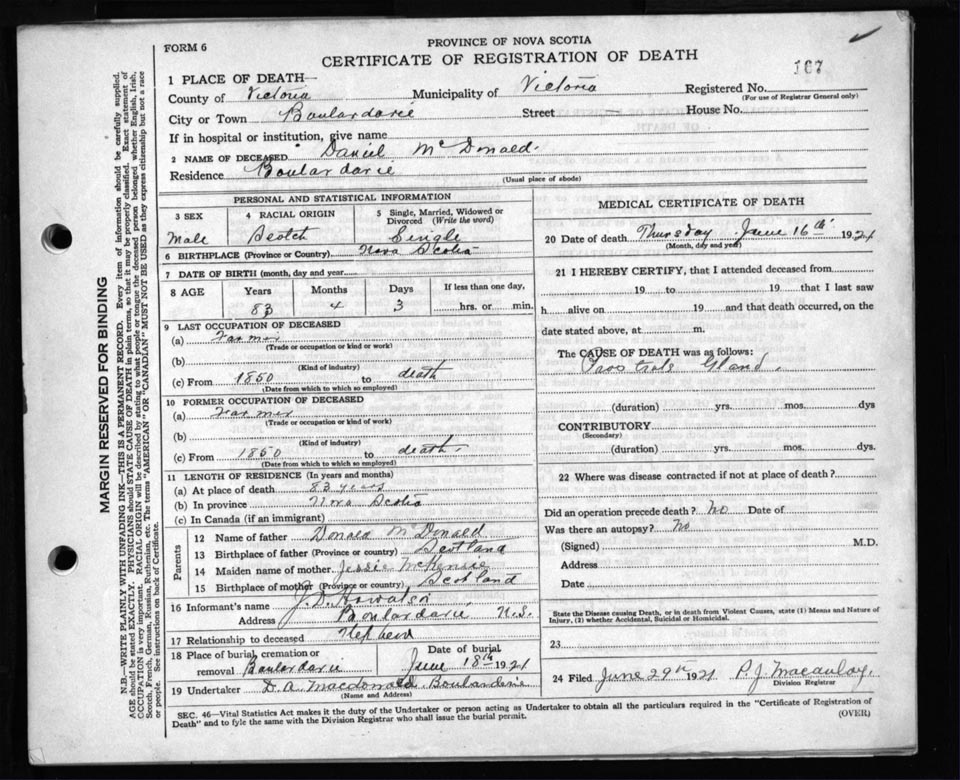 FORM 6
PROVINCE OF NOVA SCOTIA
CERTIFICATE OF REGISTRATION OF DEATH
167
1 PLACE OF DEATH—
County of Victoria Municipality of Victoria Registered No.
(For use of Registrar General only)
City or Town Boulardarie Street House No.
If in hospital or institution, give name
2 NAME OF DECEASED Daniel McDonald.
Residence Boulardarie
(Usual place of abode)
PERSONAL AND STATISTICAL INFORMATION
3 SEX 4 RACIAL ORIGIN 5 Single, Married, Widowed or Divorced (Write the word)
Male Scotch Single
6 BIRTHPLACE (Province or Country) Nova Scotia
7 DATE OF BIRTH (month, day and year)
8 AGE Years Months Days If less than one day,
83 4 3 hrs. or min.
9 LAST OCCUPATION OF DECEASED
(a) Farmer
(Trade or occupation or kind or work)
(b)
(Kind of industry)
(c) From 1850 to death
(Date from which to which so employed)
10 FORMER OCCUPATION OF DECEASED
(a) Farmer
(Trade or occupation or kind of work)
(b)
(Kind of industry)
(c) From 1850 to death.
(Date from which to which so employed)
11 LENGTH OF RESIDENCE (In years and months)
(a) At place of death 83 years
(b) In province Nova Scotia
(c) In Canada (if an immigrant)
Parents
12 Name of father Donald McDonald
13 Birthplace of father (Province or country) Scotland
14 Maiden name of mother Jessie McKenzie
15 Birthplace of mother (Province or country) Scotland
16 Informant's name J. D.
Address Boulardarie N.S.
17 Relationship to deceased
18 Place of burial, cremation or removal Boulardarie
Date of burial
June 18th 1921
19 Undertaker D. A. Macdonald Boularderie
(Name and Address)
MEDICAL CERTIFICATE OF DEATH
20 Date of death Thursday June 16th 1921
(Month, day and year)
21 I HEREBY CERTIFY, that I attended deceased from
19 to 19 that I last saw
h alive on 19 and that death occurred, on the
date stated above, at m.
The CAUSE OF DEATH was as follows:
Prostrate Gland.
(duration) yrs. mos. dys
CONTRIBUTORY
(Secondary)
(duration) yrs. mos. dys.
22 Where was disease contracted if not at place of death?
Did an operation precede death? No Date of
Was there an autopsy? No
(Signed) M.D.
Address
Date
State the Disease causing Death, or in death from Violent Causes, state (1) Means and Nature of
Injury, (2) whether Accidental, Suicidal or Homicidal.
23
24 Filed June 29th 1921 P. J. Macaulay.
Division Registrar
SEC. 46—Vital Statistics Act makes it the duty of the Undertaker or person acting as Undertaker to obtain all the particulars required in the "Certificate of Registration of
Death" and to fyle the same with the Division Registrar who shall issue the burial permit.
(OVER)
MARGIN RESERVED FOR BINDING
N.B.—WRITE PLAINLY WITH UNFADING INK—THIS IS A PERMANENT RECORD. Every item of information should be carefully supplied.
AGE should be stated EXACTLY. PHYSICIANS should STATE CAUSE OF DEATH in plain terms, so that it may be properly classified. Exact statement of
OCCUPATION is very important. RACIAL ORIGIN will be described by stating to what people or tongue the deceased person belonged whether English, Irish,
Scotch, French, German, Russian, Ruthenian, etc. The terms "AMERICAN" OR "CANADIAN" MUST NOT BE USED as they express citizenship but not a race
or people. See instructions on back of Certificate.